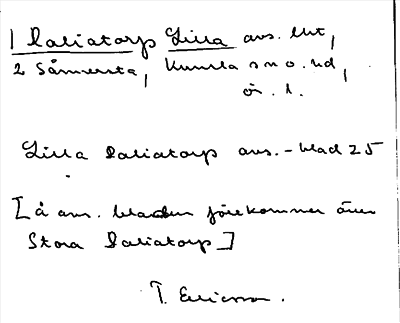 1 Daliatorp Lilla avs. lht,
2 Sånnersta, Kumla sn o. hd,
ör. l.
Lilla Daliatorp avs. - blad 25
[å avs. bladen förekommer även
Stora Daliatorp]
T. Ericsson.